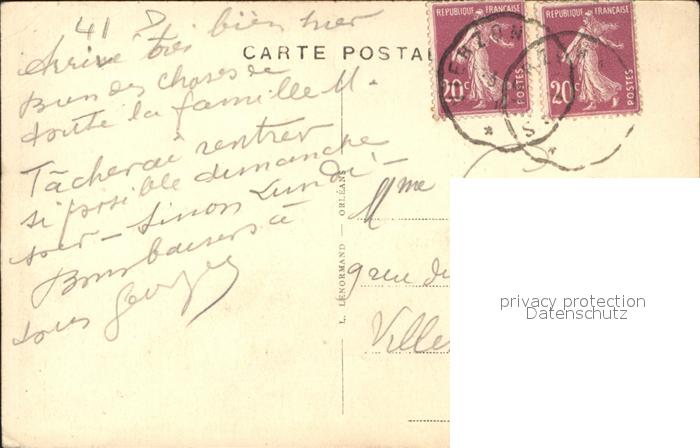 41
Arrivé très bien hier
CARTE POSTA
Bien des choses de
toute la famille M.
Tâcherai rentrer
si possible dimanche
soir – sinon Lundi –
Bons baisers à
tous Georges
REPUBLIQUE FRANÇAISE
20c
POSTES
REPUBLIQUE FRANÇAISE
20c
POSTES
L. LENORMAND — ORLÉANS
Mme
9 rue du
Ville
privacy protection
Datenschutz